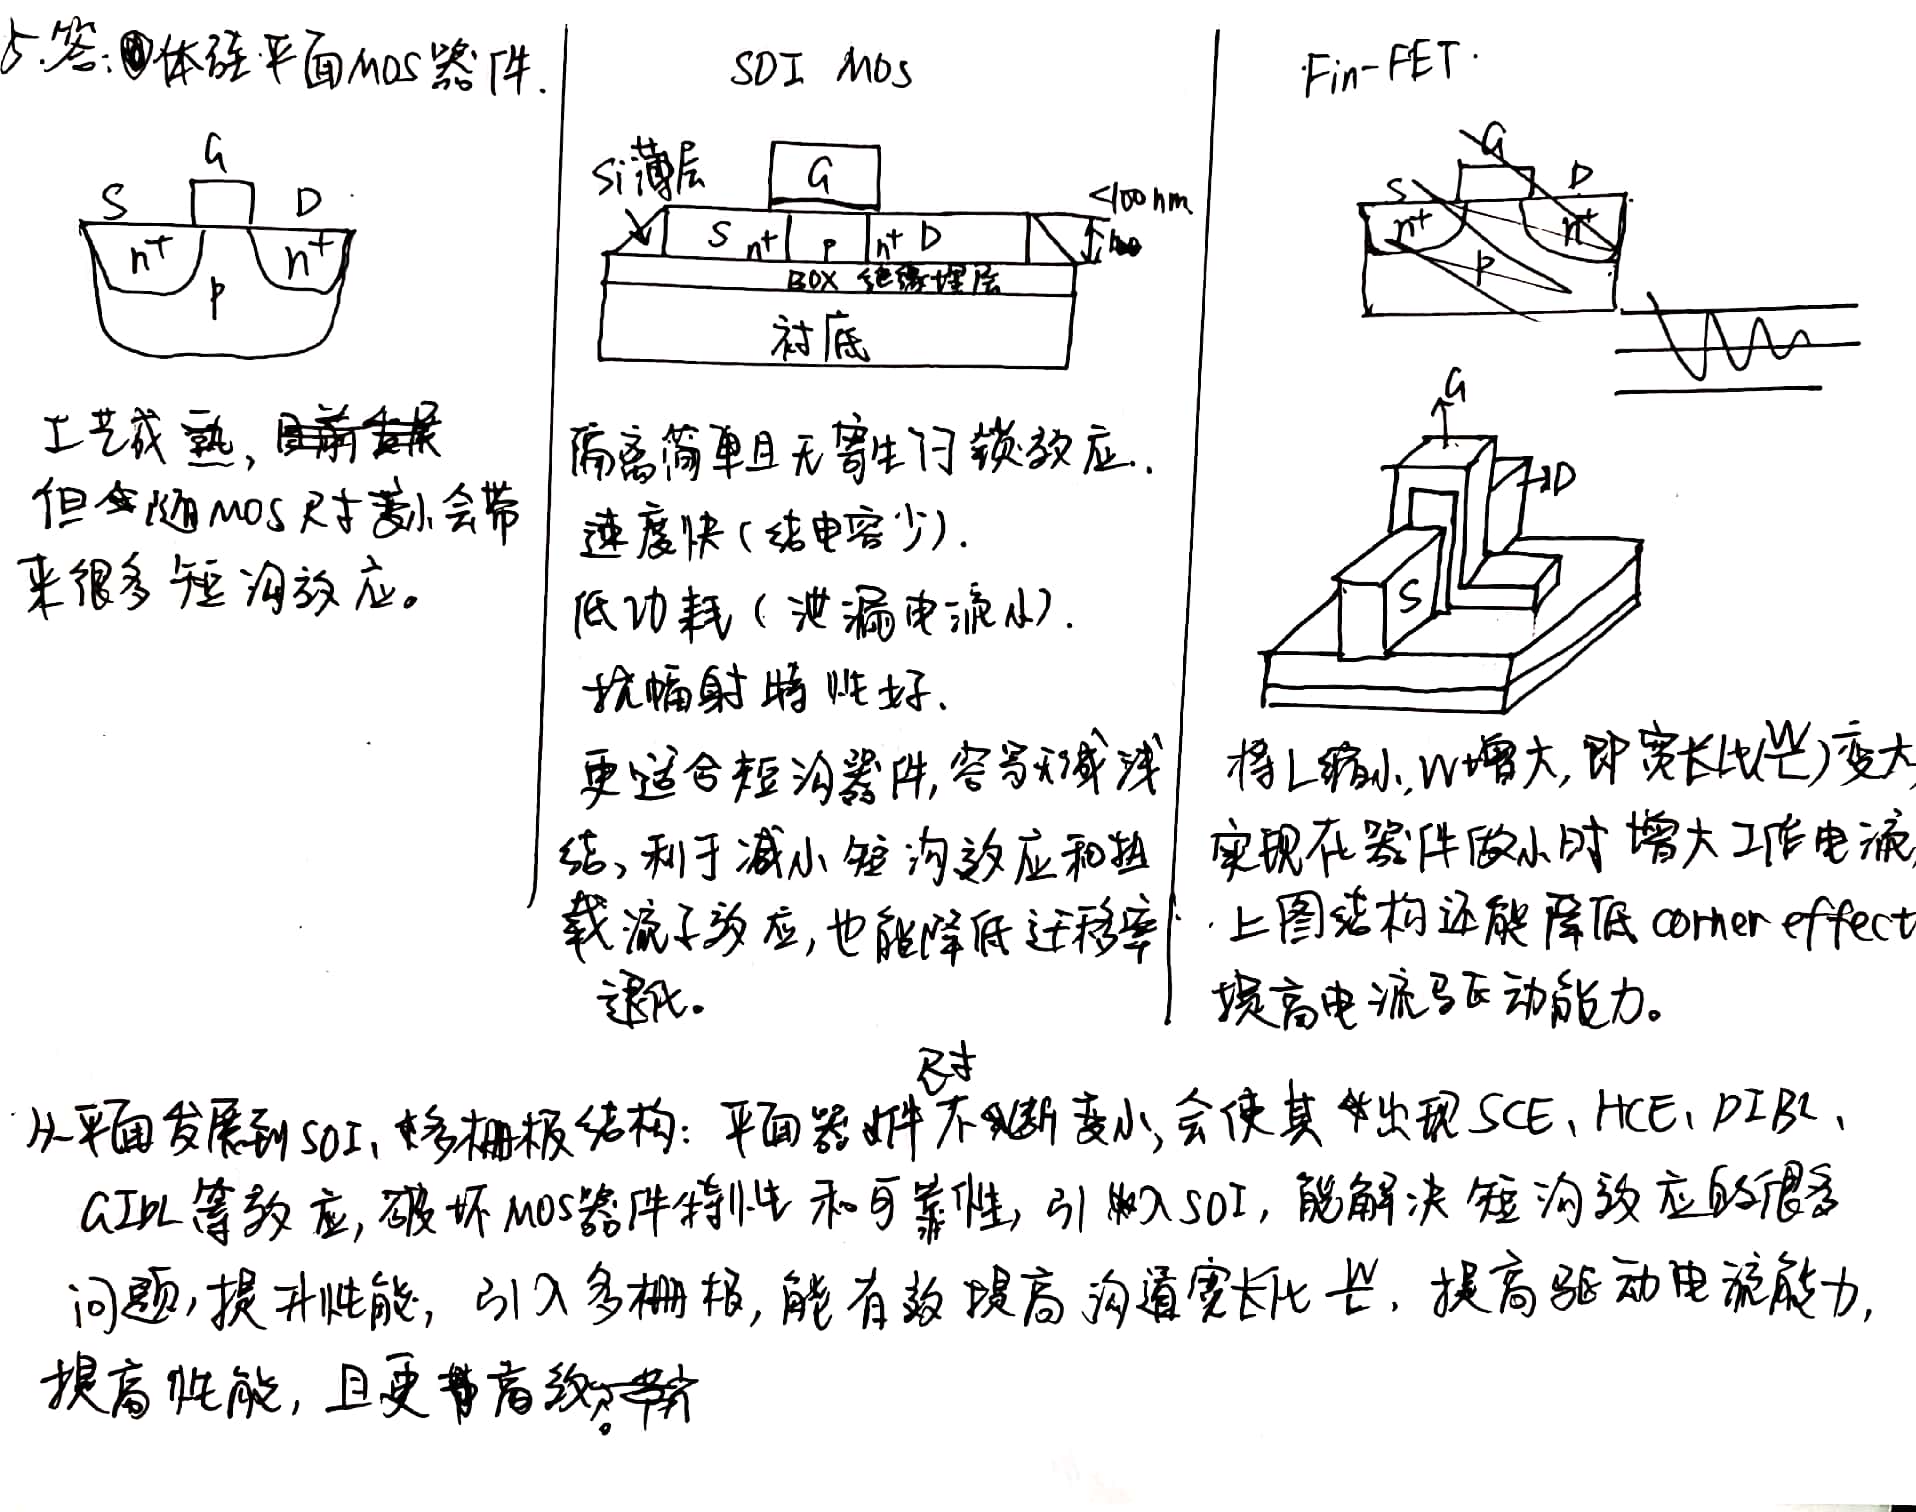 5.答:体硅平面MOS器件.
G
S
D
n+
n+
P
工艺成熟,目前发展
但会随MOS尺寸变小会带
来很多短沟效应。
SOI MOS
Si薄层
G
<100nm
S n+ P n+ D
BOX 绝缘埋层
衬底
隔离简单且无寄生闩锁效应.
速度快(结电容少).
低功耗(泄漏电流小).
抗幅射特性好.
更适合短沟器件,容易形成浅
结,利于减小短沟效应和热
载流子效应,也能降低迁移率
退化。
Fin-FET.
G
S
D
n+
n+
P
G
D
S
将L缩小,W增大,即宽长比(W/L)变大,
实现在器件做小时增大工作电流,
上图结构还能降低corner effect
提高电流驱动能力。
尺寸
从平面发展到SOI、多栅极结构:平面器件不断变小,会使其出现SCE、HCE、DIBL、
GIDL等效应,破坏MOS器件特性和可靠性,引入SOI,能解决短沟效应的很多
问题,提升性能,引入多栅极,能有效提高沟道宽长比W/L,提高驱动电流能力,
提高性能,且更高效。